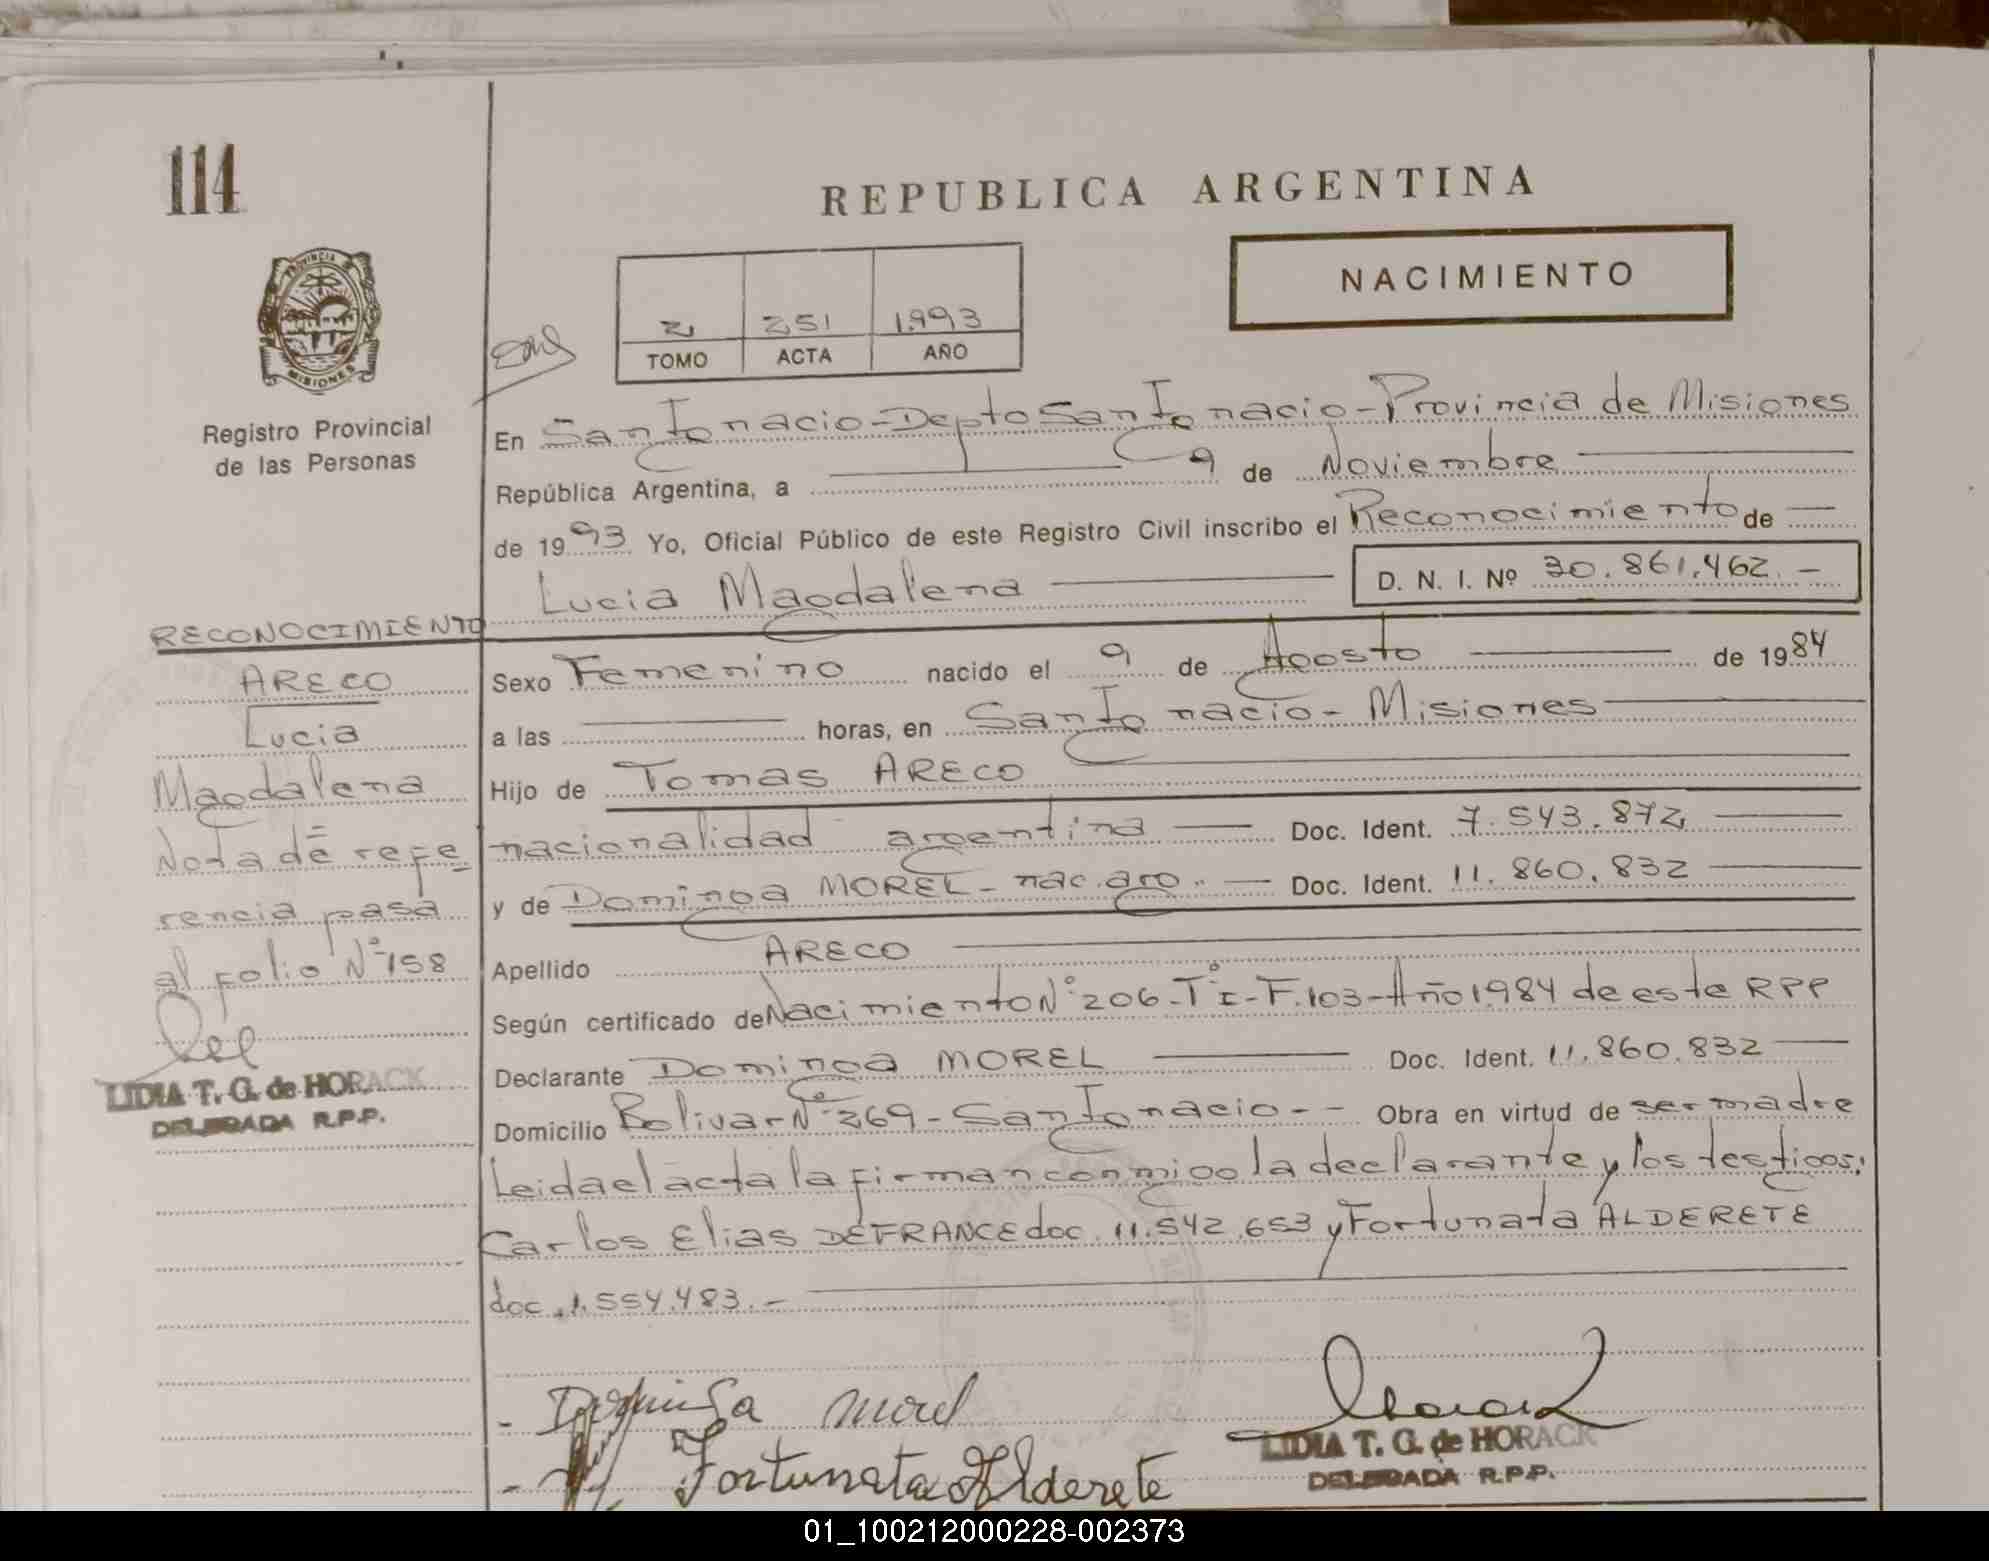 114
REPUBLICA ARGENTINA
NACIMIENTO
PROVINCIA DE
MISIONES
2 251 1.993
TOMO ACTA AÑO
Registro Provincial
de las Personas
En San Ignacio-Depto San Ignacio-Provincia de Misiones
República Argentina, a 9 de Noviembre
de 1993 Yo, Oficial Público de este Registro Civil inscribo el Reconocimiento de
Lucia Magdalena D. N. I. Nº 30.861.462.-
RECONOCIMIENTO
ARECO
Lucia
Magdalena
Nota de refe
rencia pasa
al folio Nº158
LIDIA T. G. de HORACK
DELEGADA R.P.P.
Sexo Femenino nacido el 9 de Agosto de 1984
a las horas, en San Ignacio- Misiones
Hijo de Tomas ARECO
nacionalidad argentina Doc. Ident. 7.543.872
y de Dominga MOREL- nac. arg.- Doc. Ident. 11.860.832
Apellido ARECO
Según certificado de Nacimiento Nº206-TºI-F.103-Año 1984 de este RPP
Declarante Dominga MOREL Doc. Ident. 11.860.832
Domicilio Bolivar Nº269-San Ignacio-- Obra en virtud de ser madre
Leida el acta la firman conmigo la declarante y los testigos:
Carlos Elias DEFRANCE doc. 11.542.653 y Fortunata ALDERETE
doc. 1.554.483.-
- Dominga Morel
- Fortunata Alderete
Horack
LIDIA T. G. de HORACK
DELEGADA R.P.P.
01_100212000228-002373